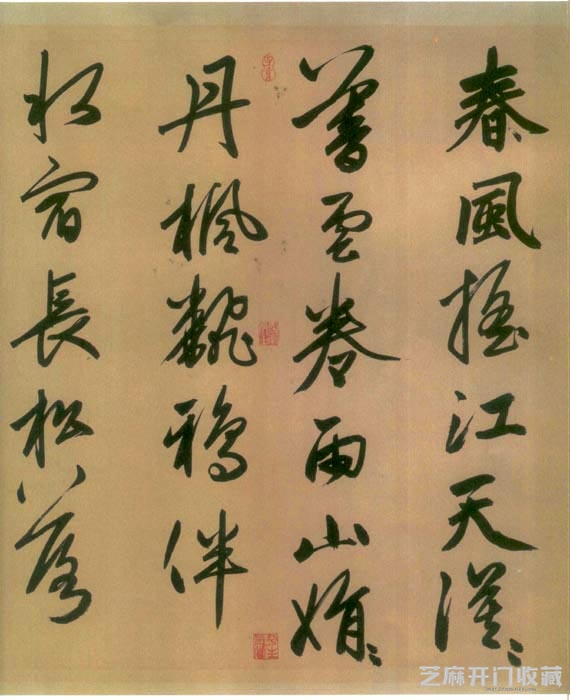 春風搖江天漠〻
暮雲卷雨山娟〻
丹楓飜鴉伴
水宿長松落
芝麻开门收藏